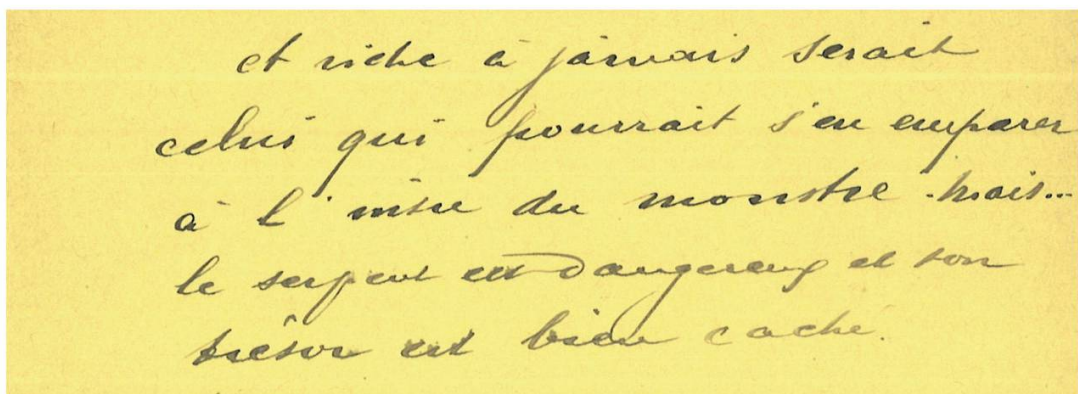 et riche à jamais serait
celui qui pourrait s'en emparer
à l'insu du monstre. Mais...
le serpent est dangereux et son
trésor est bien caché.